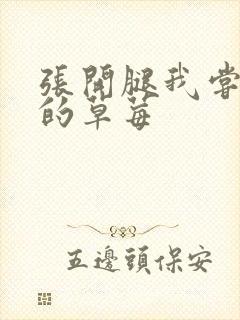 張開腿我嘗
的草莓
五邊頭保安